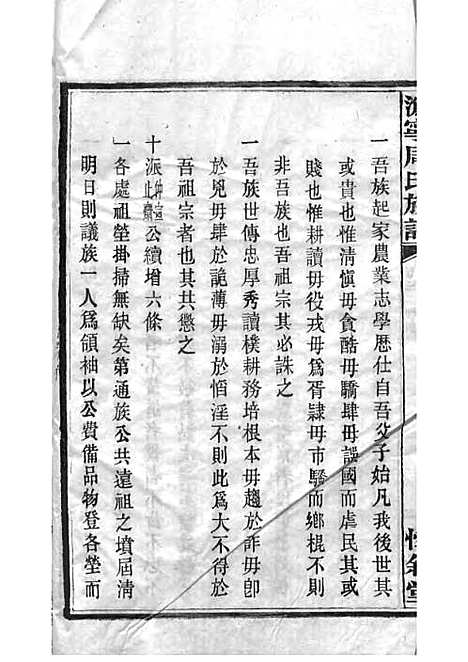 寧周氏族譜
一吾族起家農業志學歷仕自吾父子始凡我後世其
或貴也惟清愼毋貪酷毋驕肆毋誤國而虐民其或
賤也惟耕讀毋役戎毋爲胥隸毋市驛而鄉棍不則
非吾族也吾祖宗其必誅之
一吾族世傳忠厚秀讀樸耕務培根本毋趨於詐毋卽
於兇毋肆於詭薄毋溺於慆淫不則此爲大不得於
吾祖宗者也其共懲之
十派公續增六條
一各處祖塋掛掃無缺矣第通族公共遠祖之墳屆清
明日則議族一人爲領袖以公費備品物登各塋而
敘堂